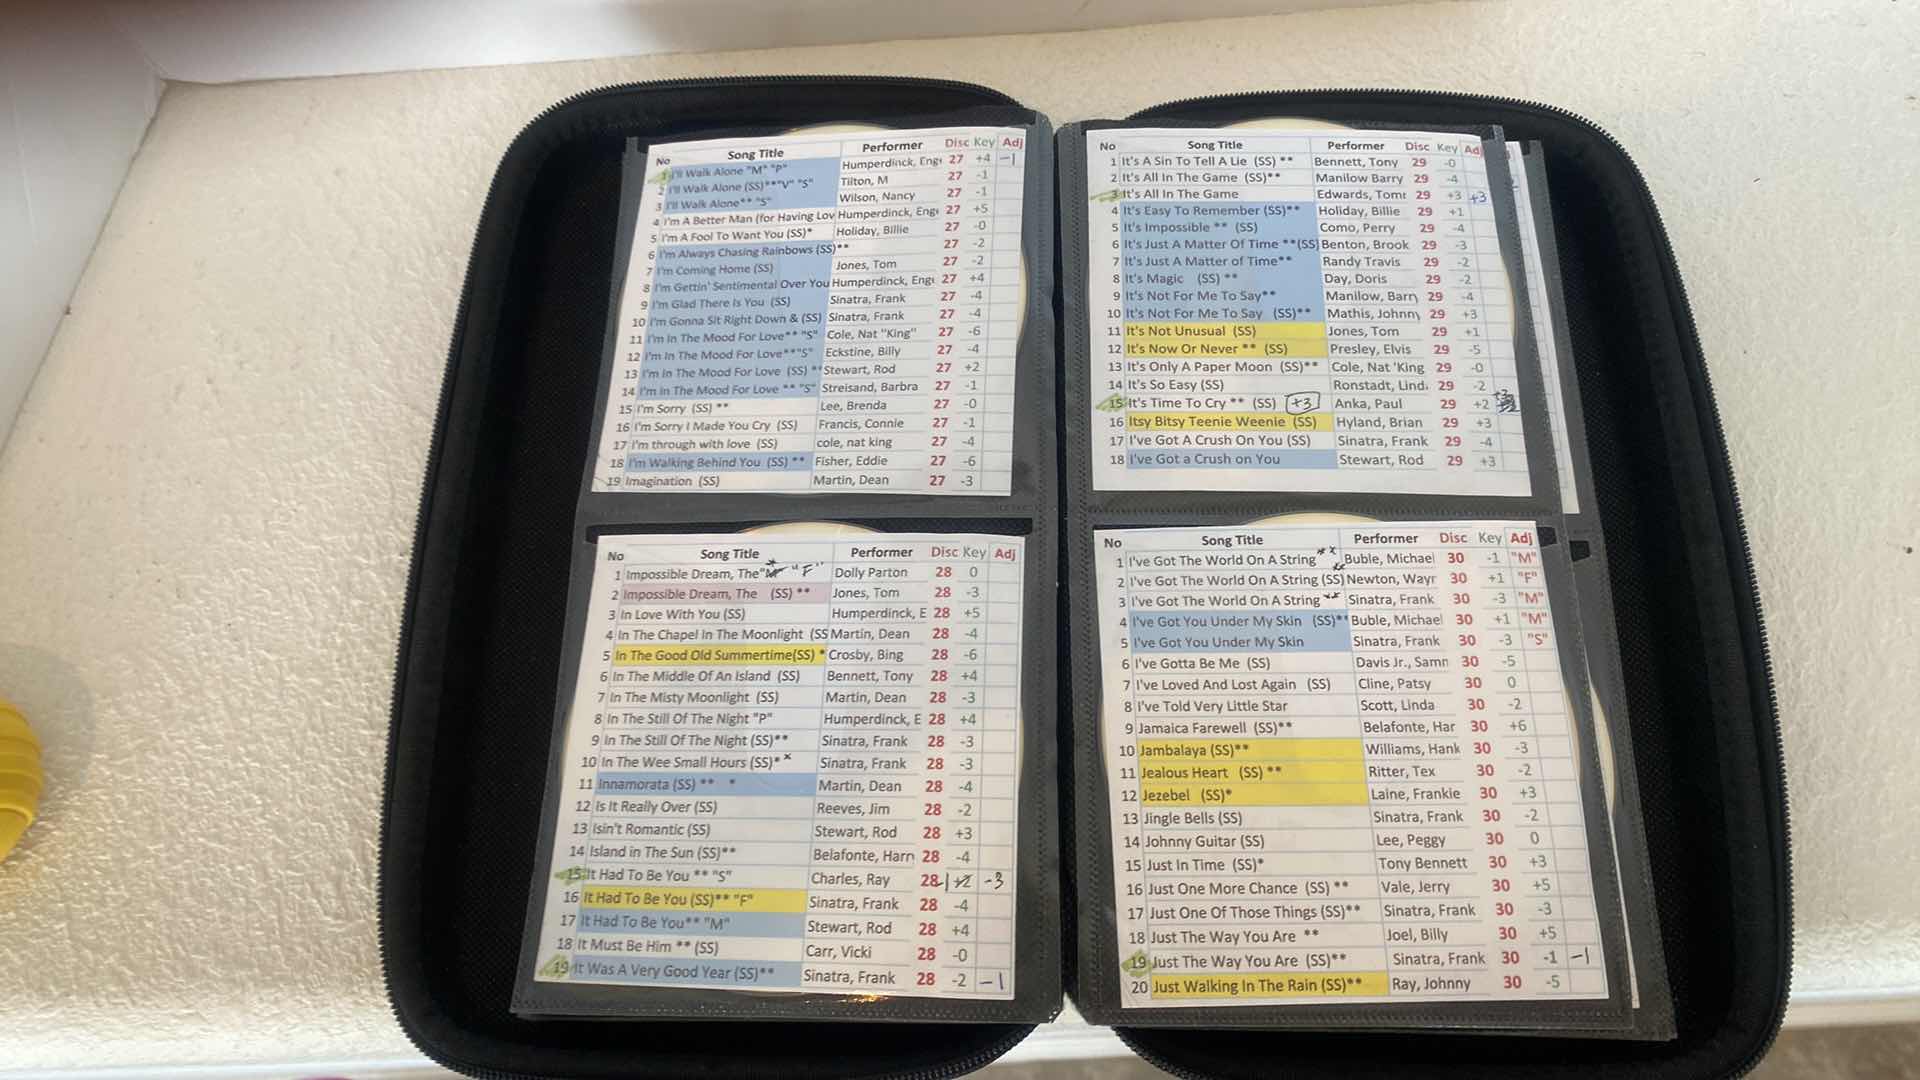 No Song Title Performer Disc Key Adj
1 I'll Walk Alone "M" "P" Humperdinck, Eng 27 +4 -1
2 I'll Walk Alone (SS)**"V" "S" Tilton, M 27 -1
3 I'll Walk Alone** "S" Wilson, Nancy 27 -1
4 I'm A Better Man (for Having Lov Humperdinck, Eng 27 +5
5 I'm A Fool To Want You (SS)* Holiday, Billie 27 -0
6 I'm Always Chasing Rainbows (SS)** 27 -2
7 I'm Coming Home (SS) Jones, Tom 27 -2
8 I'm Gettin' Sentimental Over You Humperdinck, Eng 27 +4
9 I'm Glad There Is You (SS) Sinatra, Frank 27 -4
10 I'm Gonna Sit Right Down & (SS) Sinatra, Frank 27 -4
11 I'm In The Mood For Love** "S" Cole, Nat "King" 27 -6
12 I'm In The Mood For Love**"S" Eckstine, Billy 27 -4
13 I'm In The Mood For Love (SS) ** Stewart, Rod 27 +2
14 I'm In The Mood For Love ** "S" Streisand, Barbra 27 -1
15 I'm Sorry (SS) ** Lee, Brenda 27 -0
16 I'm Sorry I Made You Cry (SS) Francis, Connie 27 -1
17 I'm through with love (SS) cole, nat king 27 -4
18 I'm Walking Behind You (SS) ** Fisher, Eddie 27 -6
19 Imagination (SS) Martin, Dean 27 -3
No Song Title Performer Disc Key Adj
1 Impossible Dream, The "M" * "F" Dolly Parton 28 0
2 Impossible Dream, The (SS) ** Jones, Tom 28 -3
3 In Love With You (SS) Humperdinck, E 28 +5
4 In The Chapel In The Moonlight (SS Martin, Dean 28 -4
5 In The Good Old Summertime(SS) * Crosby, Bing 28 -6
6 In The Middle Of An Island (SS) Bennett, Tony 28 +4
7 In The Misty Moonlight (SS) Martin, Dean 28 -3
8 In The Still Of The Night "P" Humperdinck, E 28 +4
9 In The Still Of The Night (SS)** Sinatra, Frank 28 -3
10 In The Wee Small Hours (SS)* * Sinatra, Frank 28 -3
11 Innamorata (SS) ** * Martin, Dean 28 -4
12 Is It Really Over (SS) Reeves, Jim 28 -2
13 Isin't Romantic (SS) Stewart, Rod 28 +3
14 Island in The Sun (SS)** Belafonte, Harr 28 -4
15 It Had To Be You ** "S" Charles, Ray 28 -1 +2 -3
16 It Had To Be You (SS)** "F" Sinatra, Frank 28 -4
17 It Had To Be You** "M" Stewart, Rod 28 +4
18 It Must Be Him ** (SS) Carr, Vicki 28 -0
19 It Was A Very Good Year (SS)** Sinatra, Frank 28 -2 -1
No Song Title Performer Disc Key Adj
1 It's A Sin To Tell A Lie (SS) ** Bennett, Tony 29 -0
2 It's All In The Game (SS)** Manilow Barry 29 -4
3 It's All In The Game Edwards, Tomr 29 +3 +3
4 It's Easy To Remember (SS)** Holiday, Billie 29 +1
5 It's Impossible ** (SS) Como, Perry 29 -4
6 It's Just A Matter Of Time **(SS) Benton, Brook 29 -3
7 It's Just A Matter of Time** Randy Travis 29 -2
8 It's Magic (SS) ** Day, Doris 29 -2
9 It's Not For Me To Say** Manilow, Barry 29 -4
10 It's Not For Me To Say (SS)** Mathis, Johnny 29 +3
11 It's Not Unusual (SS) Jones, Tom 29 +1
12 It's Now Or Never ** (SS) Presley, Elvis 29 -5
13 It's Only A Paper Moon (SS)** Cole, Nat 'King 29 -0
14 It's So Easy (SS) Ronstadt, Lind 29 -2
15 It's Time To Cry ** (SS) +3 Anka, Paul 29 +2
16 Itsy Bitsy Teenie Weenie (SS) Hyland, Brian 29 +3
17 I've Got A Crush On You (SS) Sinatra, Frank 29 -4
18 I've Got a Crush on You Stewart, Rod 29 +3
No Song Title Performer Disc Key Adj
1 I've Got The World On A String ** Buble, Michael 30 -1 "M"
2 I've Got The World On A String (SS) ** Newton, Wayr 30 +1 "F"
3 I've Got The World On A String ** Sinatra, Frank 30 -3 "M"
4 I've Got You Under My Skin (SS)** Buble, Michael 30 +1 "M"
5 I've Got You Under My Skin Sinatra, Frank 30 -3 "S"
6 I've Gotta Be Me (SS) Davis Jr., Samn 30 -5
7 I've Loved And Lost Again (SS) Cline, Patsy 30 0
8 I've Told Very Little Star Scott, Linda 30 -2
9 Jamaica Farewell (SS)** Belafonte, Har 30 +6
10 Jambalaya (SS)** Williams, Hank 30 -3
11 Jealous Heart (SS) ** Ritter, Tex 30 -2
12 Jezebel (SS)* Laine, Frankie 30 +3
13 Jingle Bells (SS) Sinatra, Frank 30 -2
14 Johnny Guitar (SS) Lee, Peggy 30 0
15 Just In Time (SS)* Tony Bennett 30 +3
16 Just One More Chance (SS) ** Vale, Jerry 30 +5
17 Just One Of Those Things (SS)** Sinatra, Frank 30 -3
18 Just The Way You Are ** Joel, Billy 30 +5
19 Just The Way You Are (SS)** Sinatra, Frank 30 -1 -1
20 Just Walking In The Rain (SS)** Ray, Johnny 30 -5